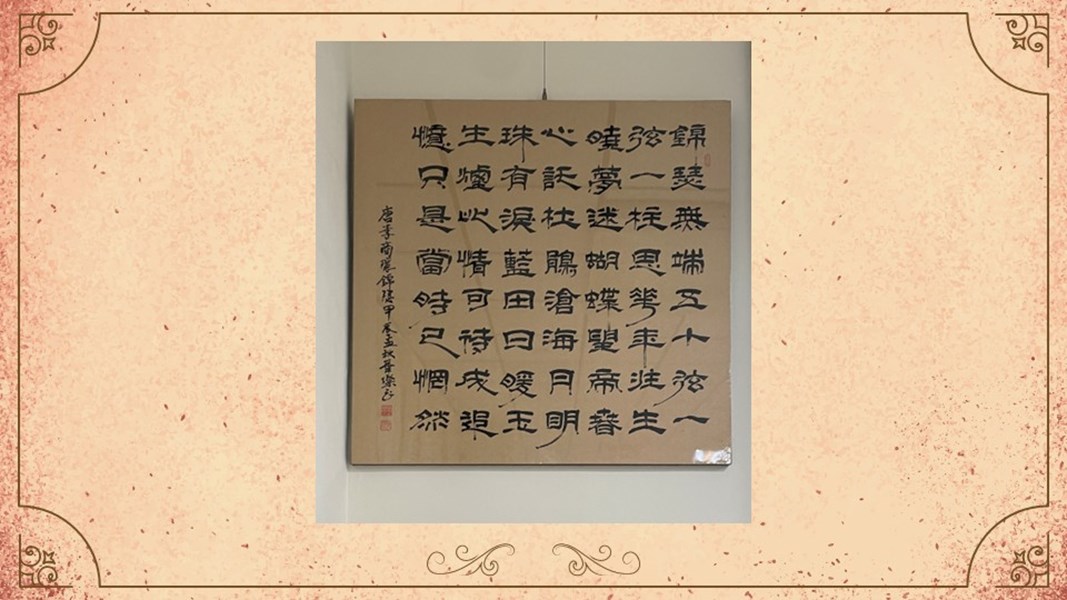 錦瑟無端五十弦一
弦一柱思華年莊生
曉夢迷蝴蝶望帝春
心託杜鵑滄海月明
珠有淚藍田日暖玉
生煙此情可待成追
憶只是當時已惘然
唐李商隱錦瑟甲辰孟秋